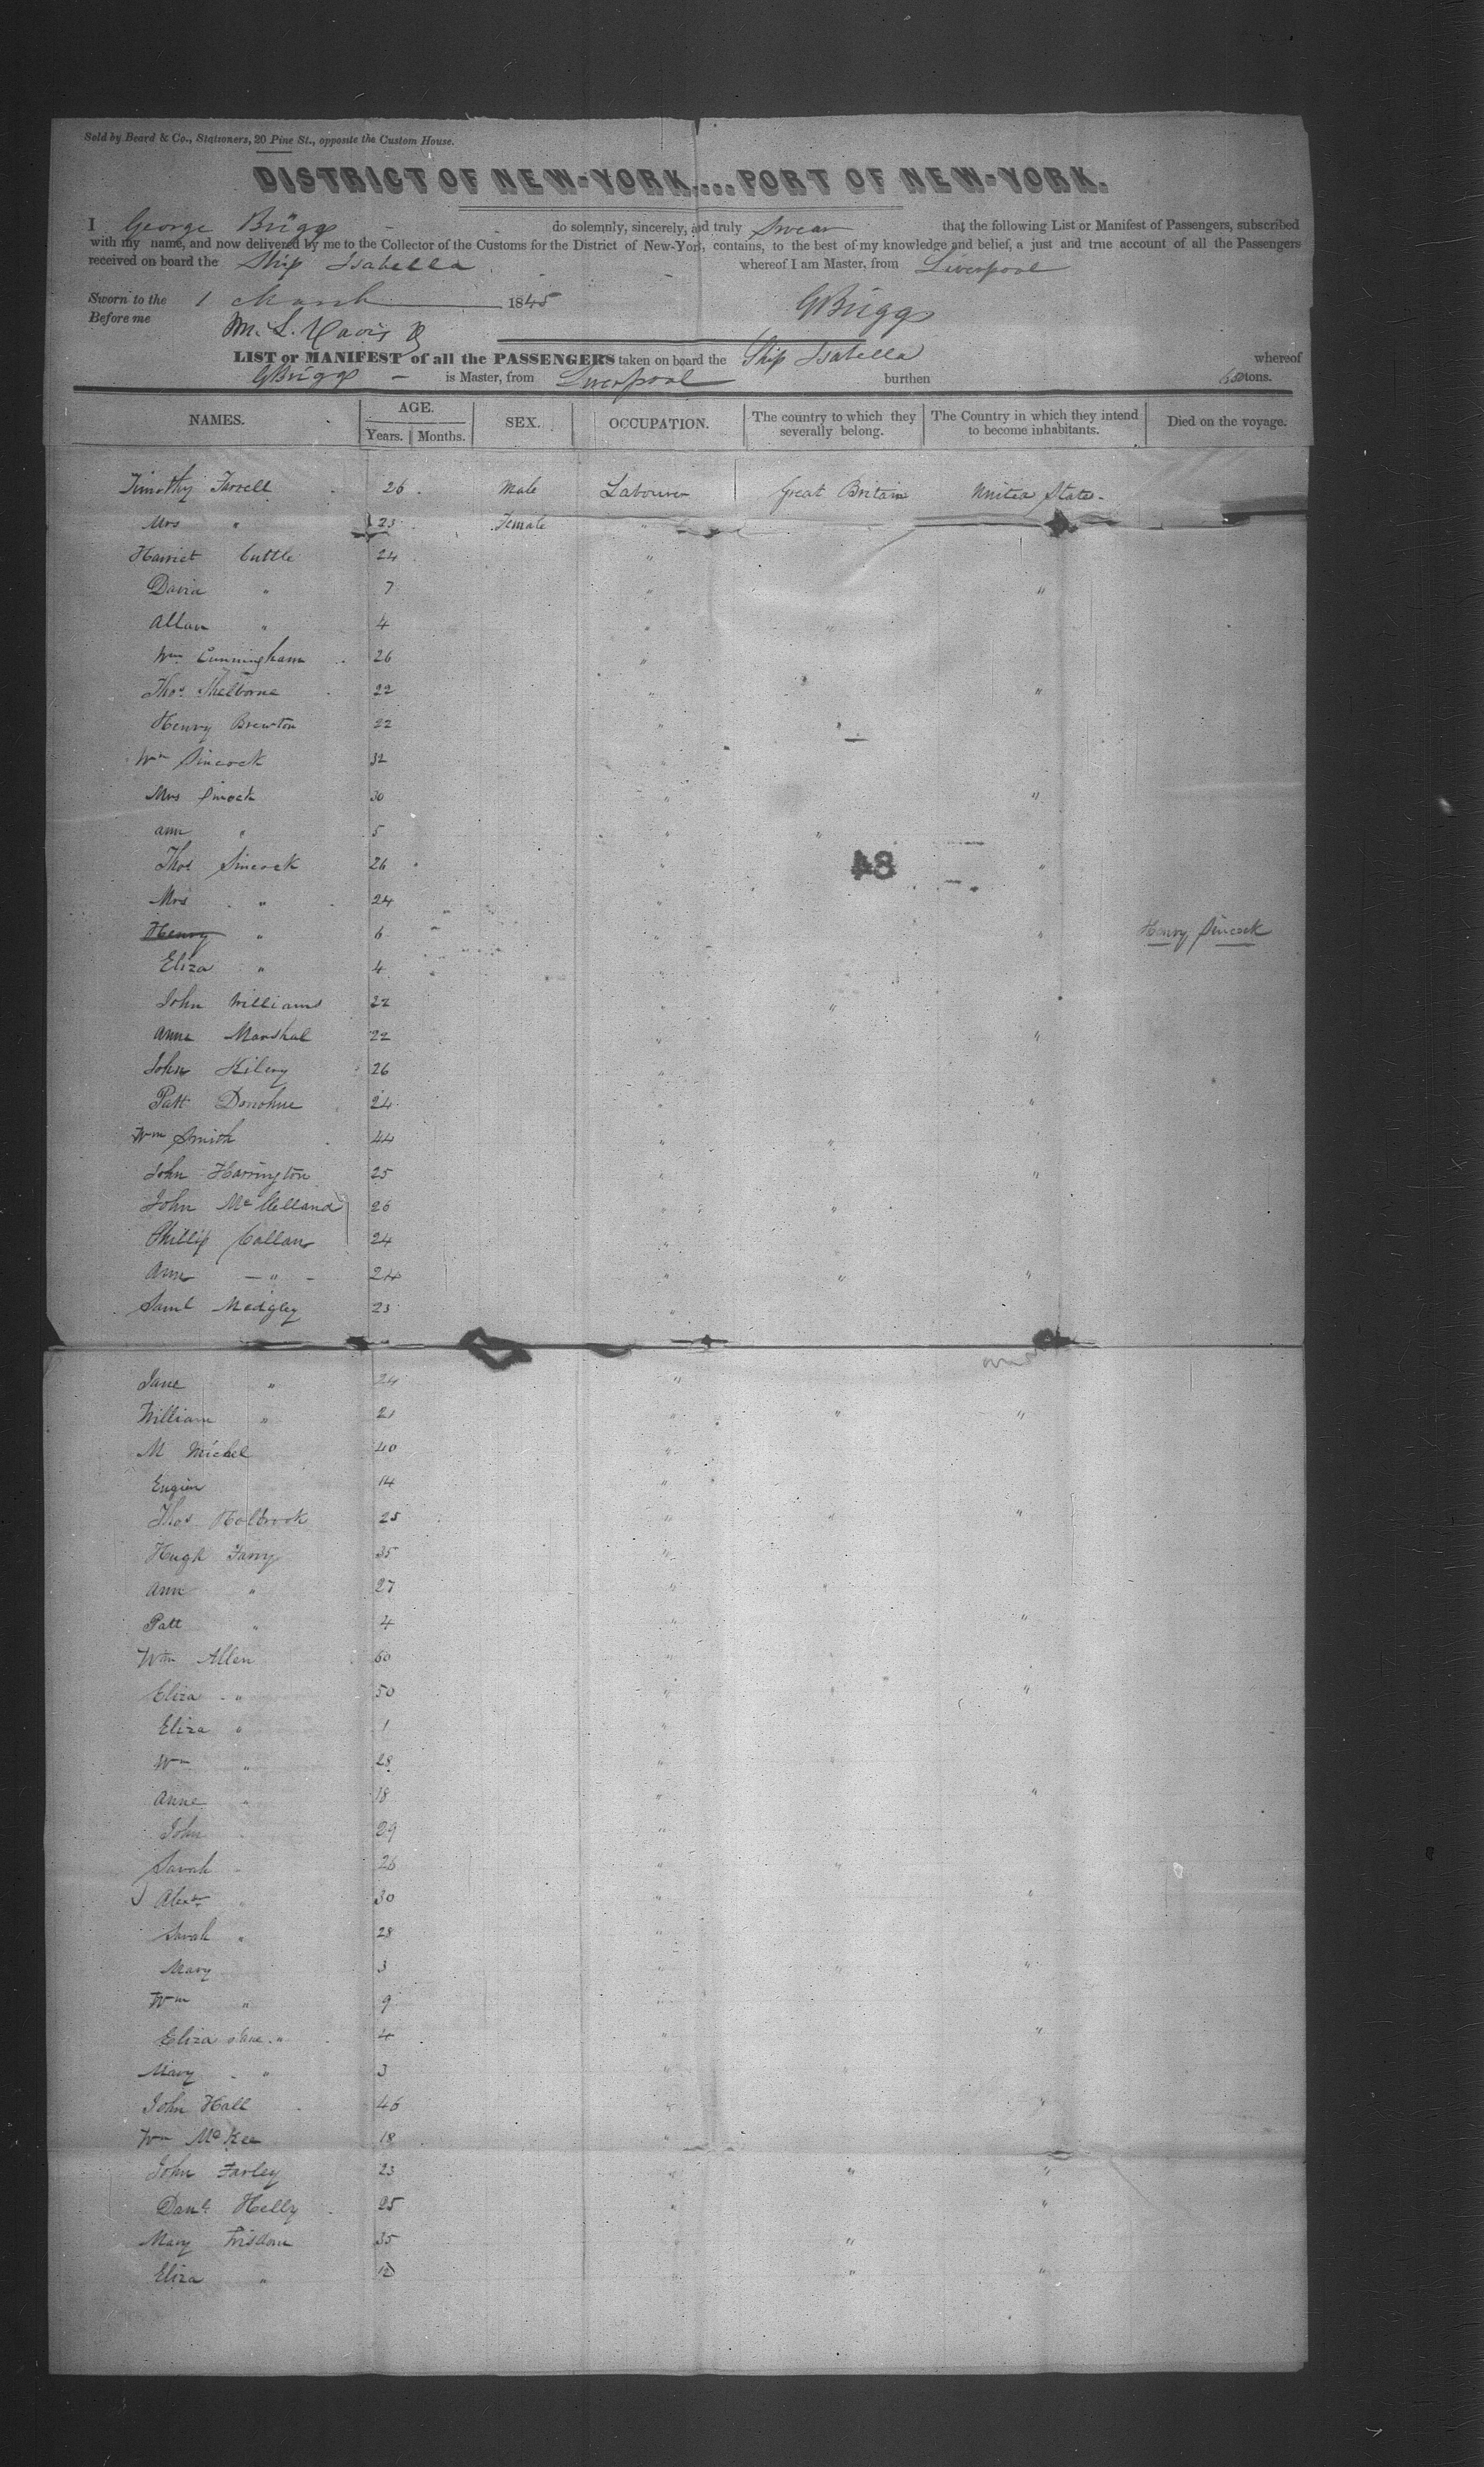 Sold by Beard & Co., Stationers, 20 Pine St., opposite the Custom House.
DISTRICT OF NEW-YORK....PORT OF NEW-YORK.
I George Briggs do solemnly, sincerely, and truly Swear that the following List or Manifest of Passengers, subscribed
with my name, and now delivered by me to the Collector of the Customs for the District of New-York, contains, to the best of my knowledge and belief, a just and true account of all the Passengers
received on board the Ship Isabella whereof I am Master, from Liverpool
Sworn to the 1 March 1845 GBriggs
Before me
LIST or MANIFEST of all the PASSENGERS taken on board the Ship Isabella whereof
GBriggs - is Master, from Liverpool burthen tons.
NAMES. AGE. Years. Months. SEX. OCCUPATION. The country to which they severally belong. The Country in which they intend to become inhabitants. Died on the voyage.
Timothy Farrell 26 Male Labourer Great Britain United States
Mrs " 23 Female "
Harriet Cuttle 24 "
David " 7 " "
Allan " 4 " "
Wm Cunningham 26 "
Thos Shelborne 22 " "
Henry Brewton 22 " "
Wm Sincock 32 "
Mrs Sincock 30 " "
Ann " 5 " "
Thos Sincock 26 " "
48
Mrs " 24 "
Henry " 6 " " Henry Sincock
Eliza " 4 "
John Williams 22 " "
Anne Marshal 22 " "
John Kilery 26 "
Patt Donohue 24 " "
Wm Smith 44 " "
John Harrington 25 " "
John McClelland 26 " "
Phillip Callan 24 "
Ann " 24 " " "
Saml Medgley 23 "
Jane " 24 "
William " 21 " " "
M Michel 40 "
Eugien 14 "
Thos Holbrook 25 " " "
Hugh Farry 35 "
Ann " 27 " "
Patt " 4 " "
Wm Allen 60 "
Eliza " 50 " " "
Eliza " 1 "
Wm " 28 " "
Anne " 18 " "
John 29 "
Sarah " 26 " "
Alexr " 30 " "
Sarah " 28 "
Mary 3 " " "
Wm " 9 "
Eliza Jane " 4 " "
Mary " 3 "
John Hall 46 " "
Wm McKee 18 "
John Farley 23 " " "
Danl Helly 25 " "
Mary Frisdom 35 " "
Eliza " 12 " " "